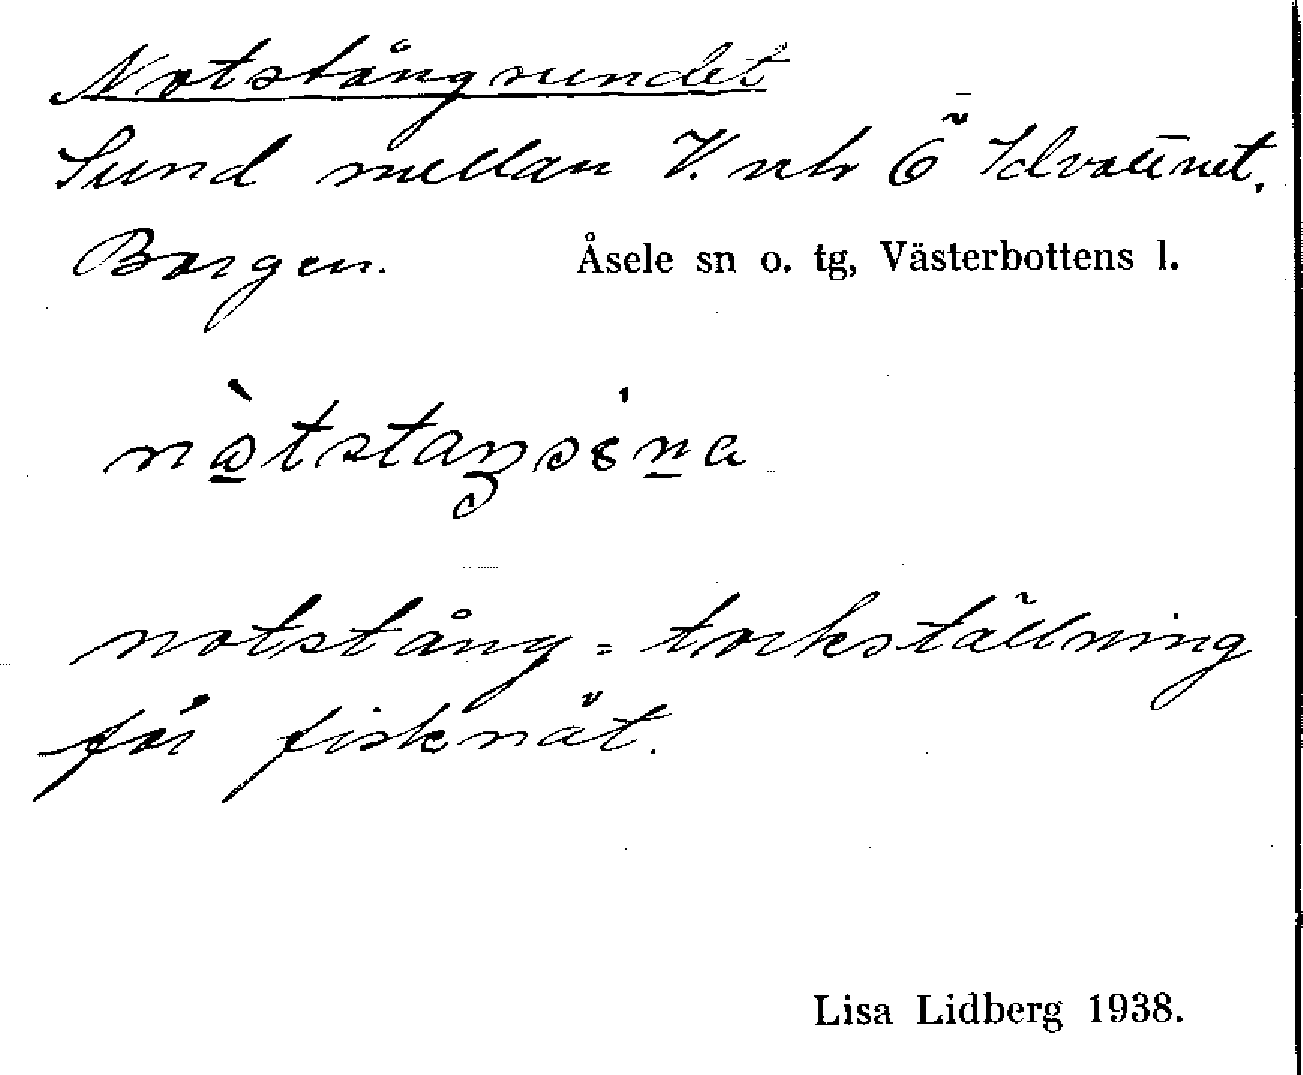 Notstångsundet
Sund mellan V. och Ö Idvattnet.
Borgen. Åsele sn o. tg, Västerbottens l.
notstång = torkställning
för fisknät.
Lisa Lidberg 1938.